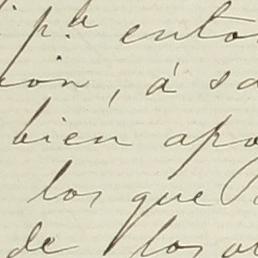 pr. enton
ion, á sa
bien apo
los que
de los